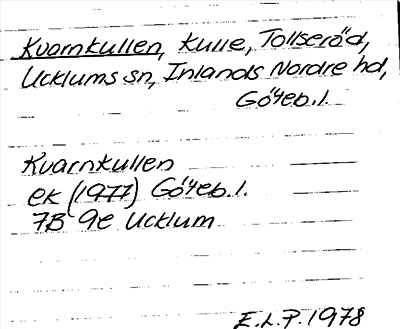 Kvarnkullen, kulle, Tollseröd,
Ucklums sn, Inlands Nordre hd,
Göteb. l.
Kvarnkullen
ek (1977) Göteb. l.
7B 9e Ucklum
E.L.P. 1978